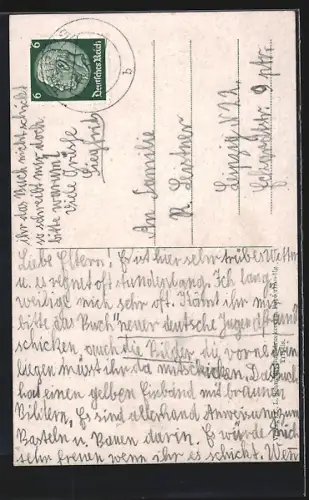 Liebe Eltern! Es ist hier sehr trübes Wetter
u. es regnet oft stundenlang. Ich lang-
weilige mich sehr oft. Könnt ihr mir
bitte das Buch "neuer deutsche Jugendfreund"
schicken, auch die Bilder, die vorne drin
liegen müsst ihr da mitschicken. Das Buch
hat einen gelben Einband mit braunen
Bildern. Es sind allerhand Anweisung zum
Basteln u. Bauen darin. Es würde mich
sehr freuen wenn ihr es schickt. Wenn
ihr das Buch nicht schickt
so schreibt mir doch
bitte warum?
Viele Grüße
Siegfried
6
6
Deutsches Reich
b
An Familie
R. Lentner
Leipzig N 22
9 ptr.